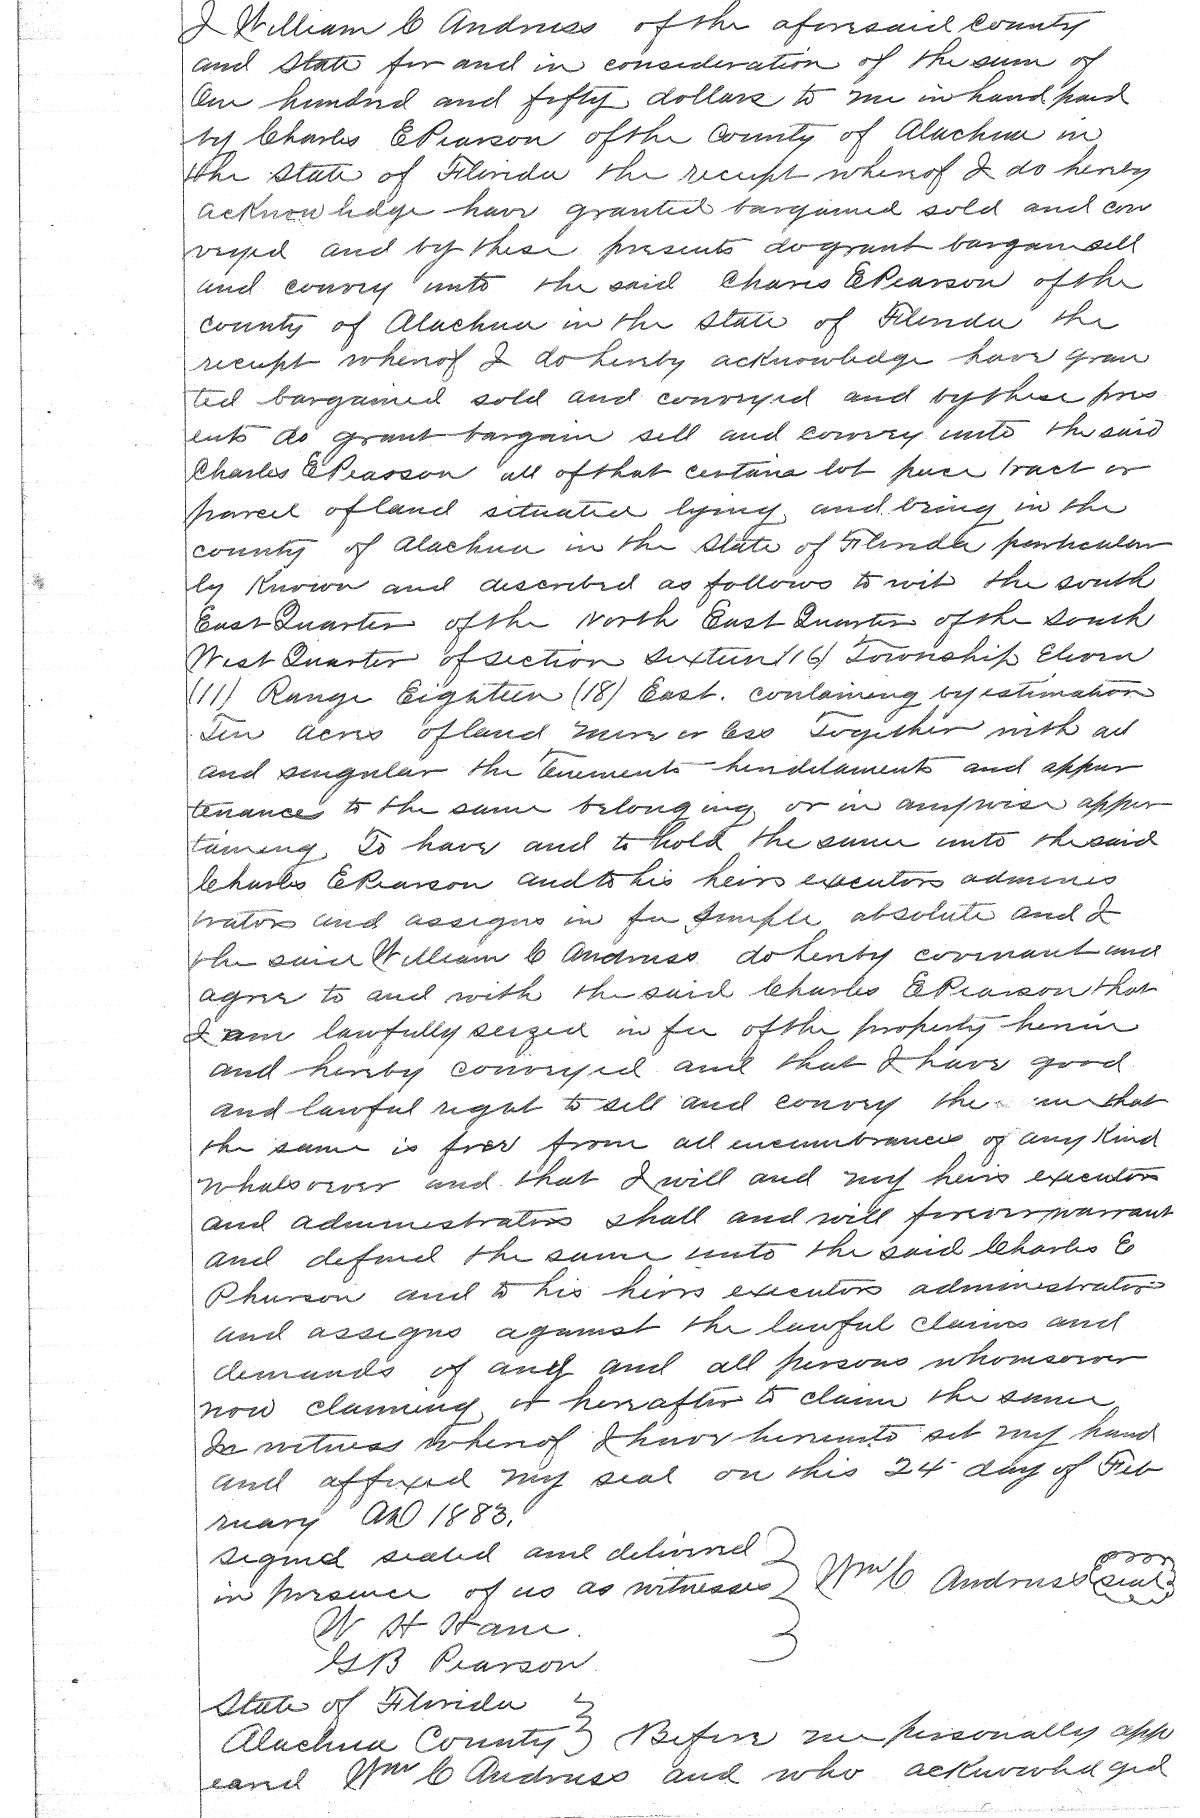 I William C Andruss of the aforesaid County
and State for and in consideration of the sum of
One hundred and fifty dollars to me in hand paid
by Charles E Pearson of the County of Alachua in
the State of Florida the receipt whereof I do hereby
acknowledge have granted bargained sold and con
veyed and by these presents do grant bargain sell
and convey unto the said Chares E Pearson of the
county of Alachua in the State of Florida the
receipt whereof I do hereby acknowledge have gran
ted bargained sold and conveyed and by these pres
ents do grant bargain sell and convey unto the said
Charles E Pearson all of that certain lot piece tract or
parcel of land situated lying and being in the
county of Alachua in the State of Florida particular
ly Known and described as follows to wit the south
East Quarter of the North East Quarter of the South
West Quarter of section sixteen (16) Township Eleven
(11) Range Eighteen (18) East. containing by estimation
Ten acres of land more or less Together with all
and singular the tenements heriditaments and appur
tenances to the same belonging or in anywise apper
taining To have and to hold the same unto the said
Charles E Pearson and to his heirs executors adminis
trators and assigns in fee simple absolute and I
the said William C Andruss do hereby covenant and
agree to and with the said Charles E Pearson that
I am lawfully seized in fee of the property herein
and hereby conveyed and that I have good
and lawful right to sell and convey the that
the same is free from all encumbrances of any Kind
whatsoever and that I will and my heirs executors
and administrators shall and will forever warrant
and defend the same unto the said Charles E
Phurson and to his heirs executors administrators
and assigns against the lawful claims and
demands of any and all persons whomsoever
now claiming or hereafter to claim the same
In witness whereof I have hereunto set my hand
and affixed my seal on this 24 day of Feb
ruary AD 1883.
Signed sealed and delivered
in presence of us as witnesses Wm C Andruss seal
W H Hane.
G B Pearson
State of Florida
Alachua County Before me personally app
eared Wm C Andruss and who acknowledged